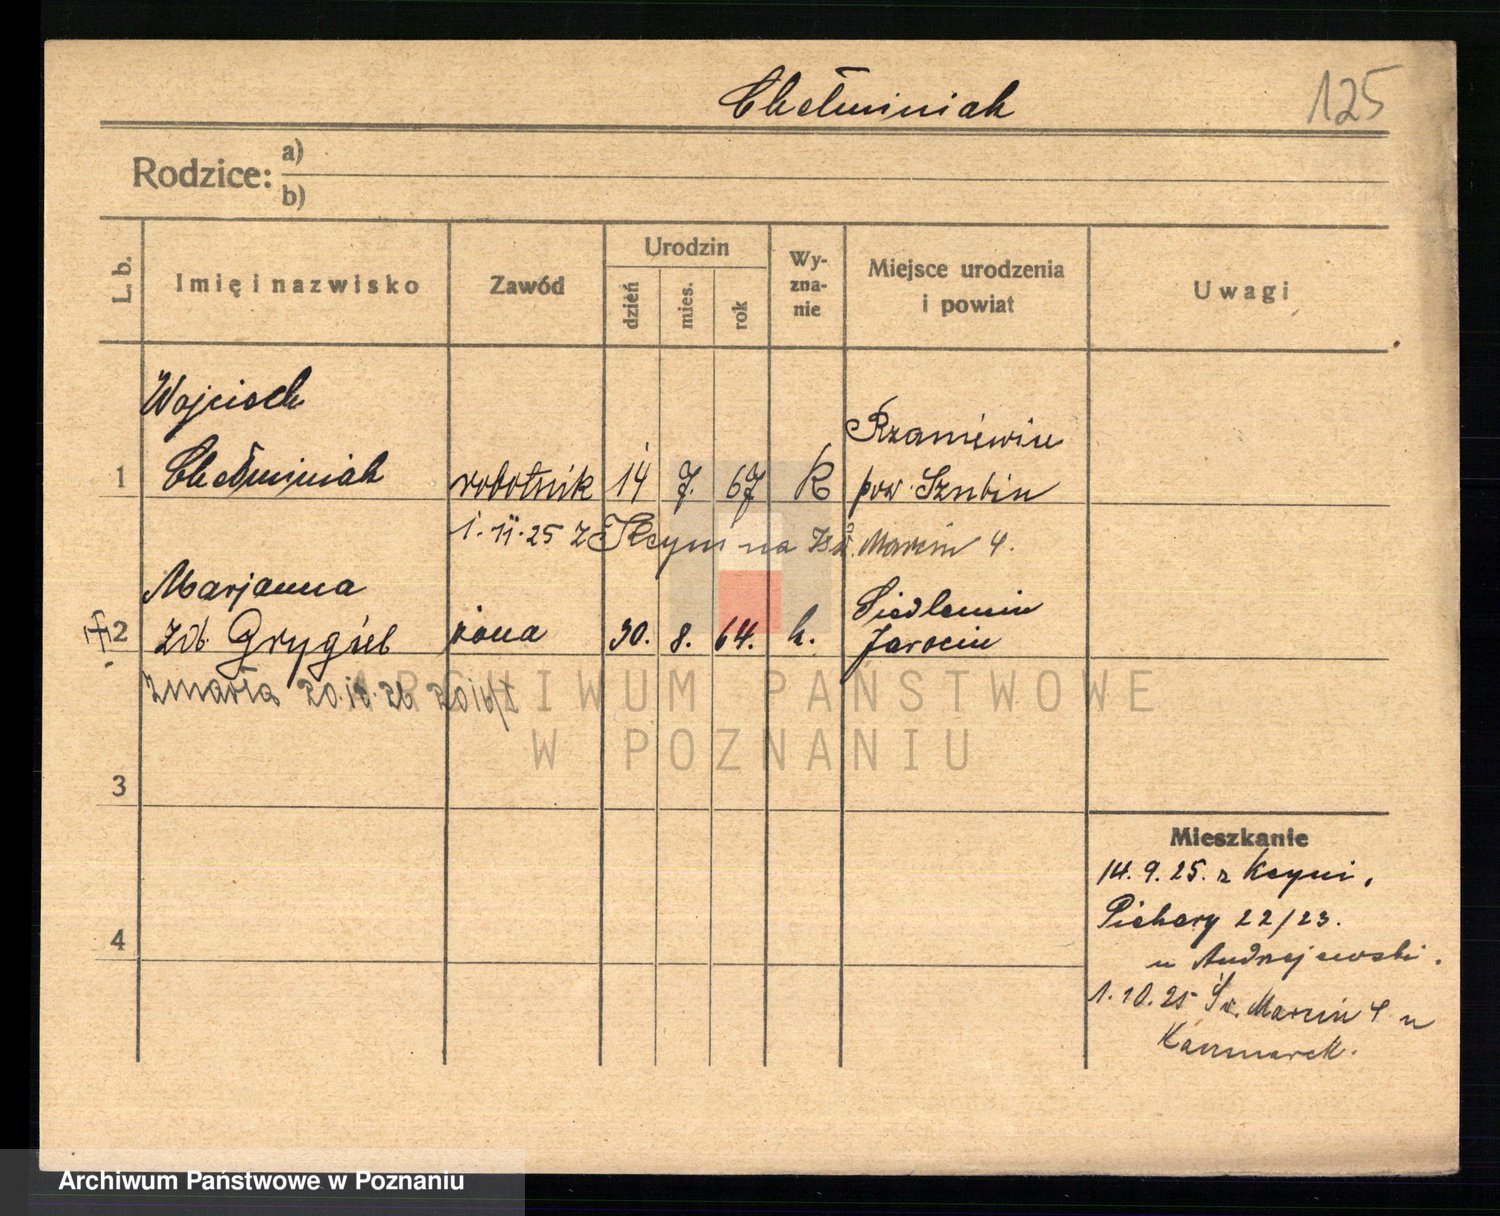 Chełminiak 125
Rodzice: a)
b)
L. b. Imię i nazwisko Zawód Urodzin Wy-zna-nie Miejsce urodzenia i powiat Uwagi
dzień mies. rok
Wojciech
1 Chełminiak robotnik 14 7. 67 K
pow. Szubin
1. 11. 25 z Kcyni na Św. Marcin 4.
Marjanna
2 zd. Grygiel żona 30. 8. 64. k. Siedlemin
Jarocin
zmarła
3
4
Mieszkanie
14. 9. 25. z Kcyni,
Piekary 22/23.
u Andrzejewski.
1. 10. 25 Św. Marcin 4 u
Kaczmarek.
ARCHIWUM PAŃSTWOWE
W POZNANIU
Archiwum Państwowe w Poznaniu